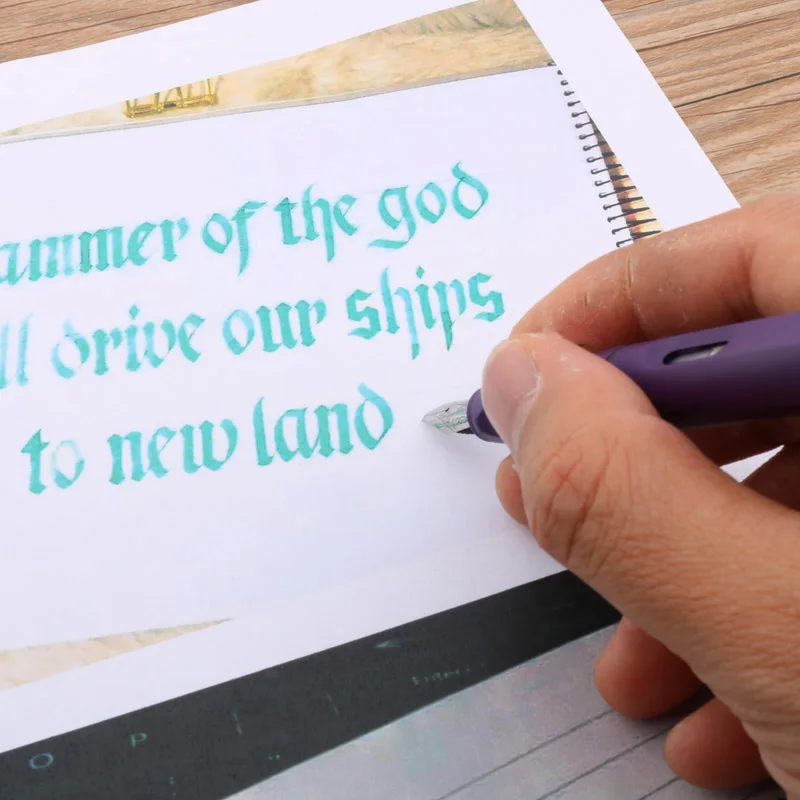 ammer of the god
ll drive our ships
to new land
O P